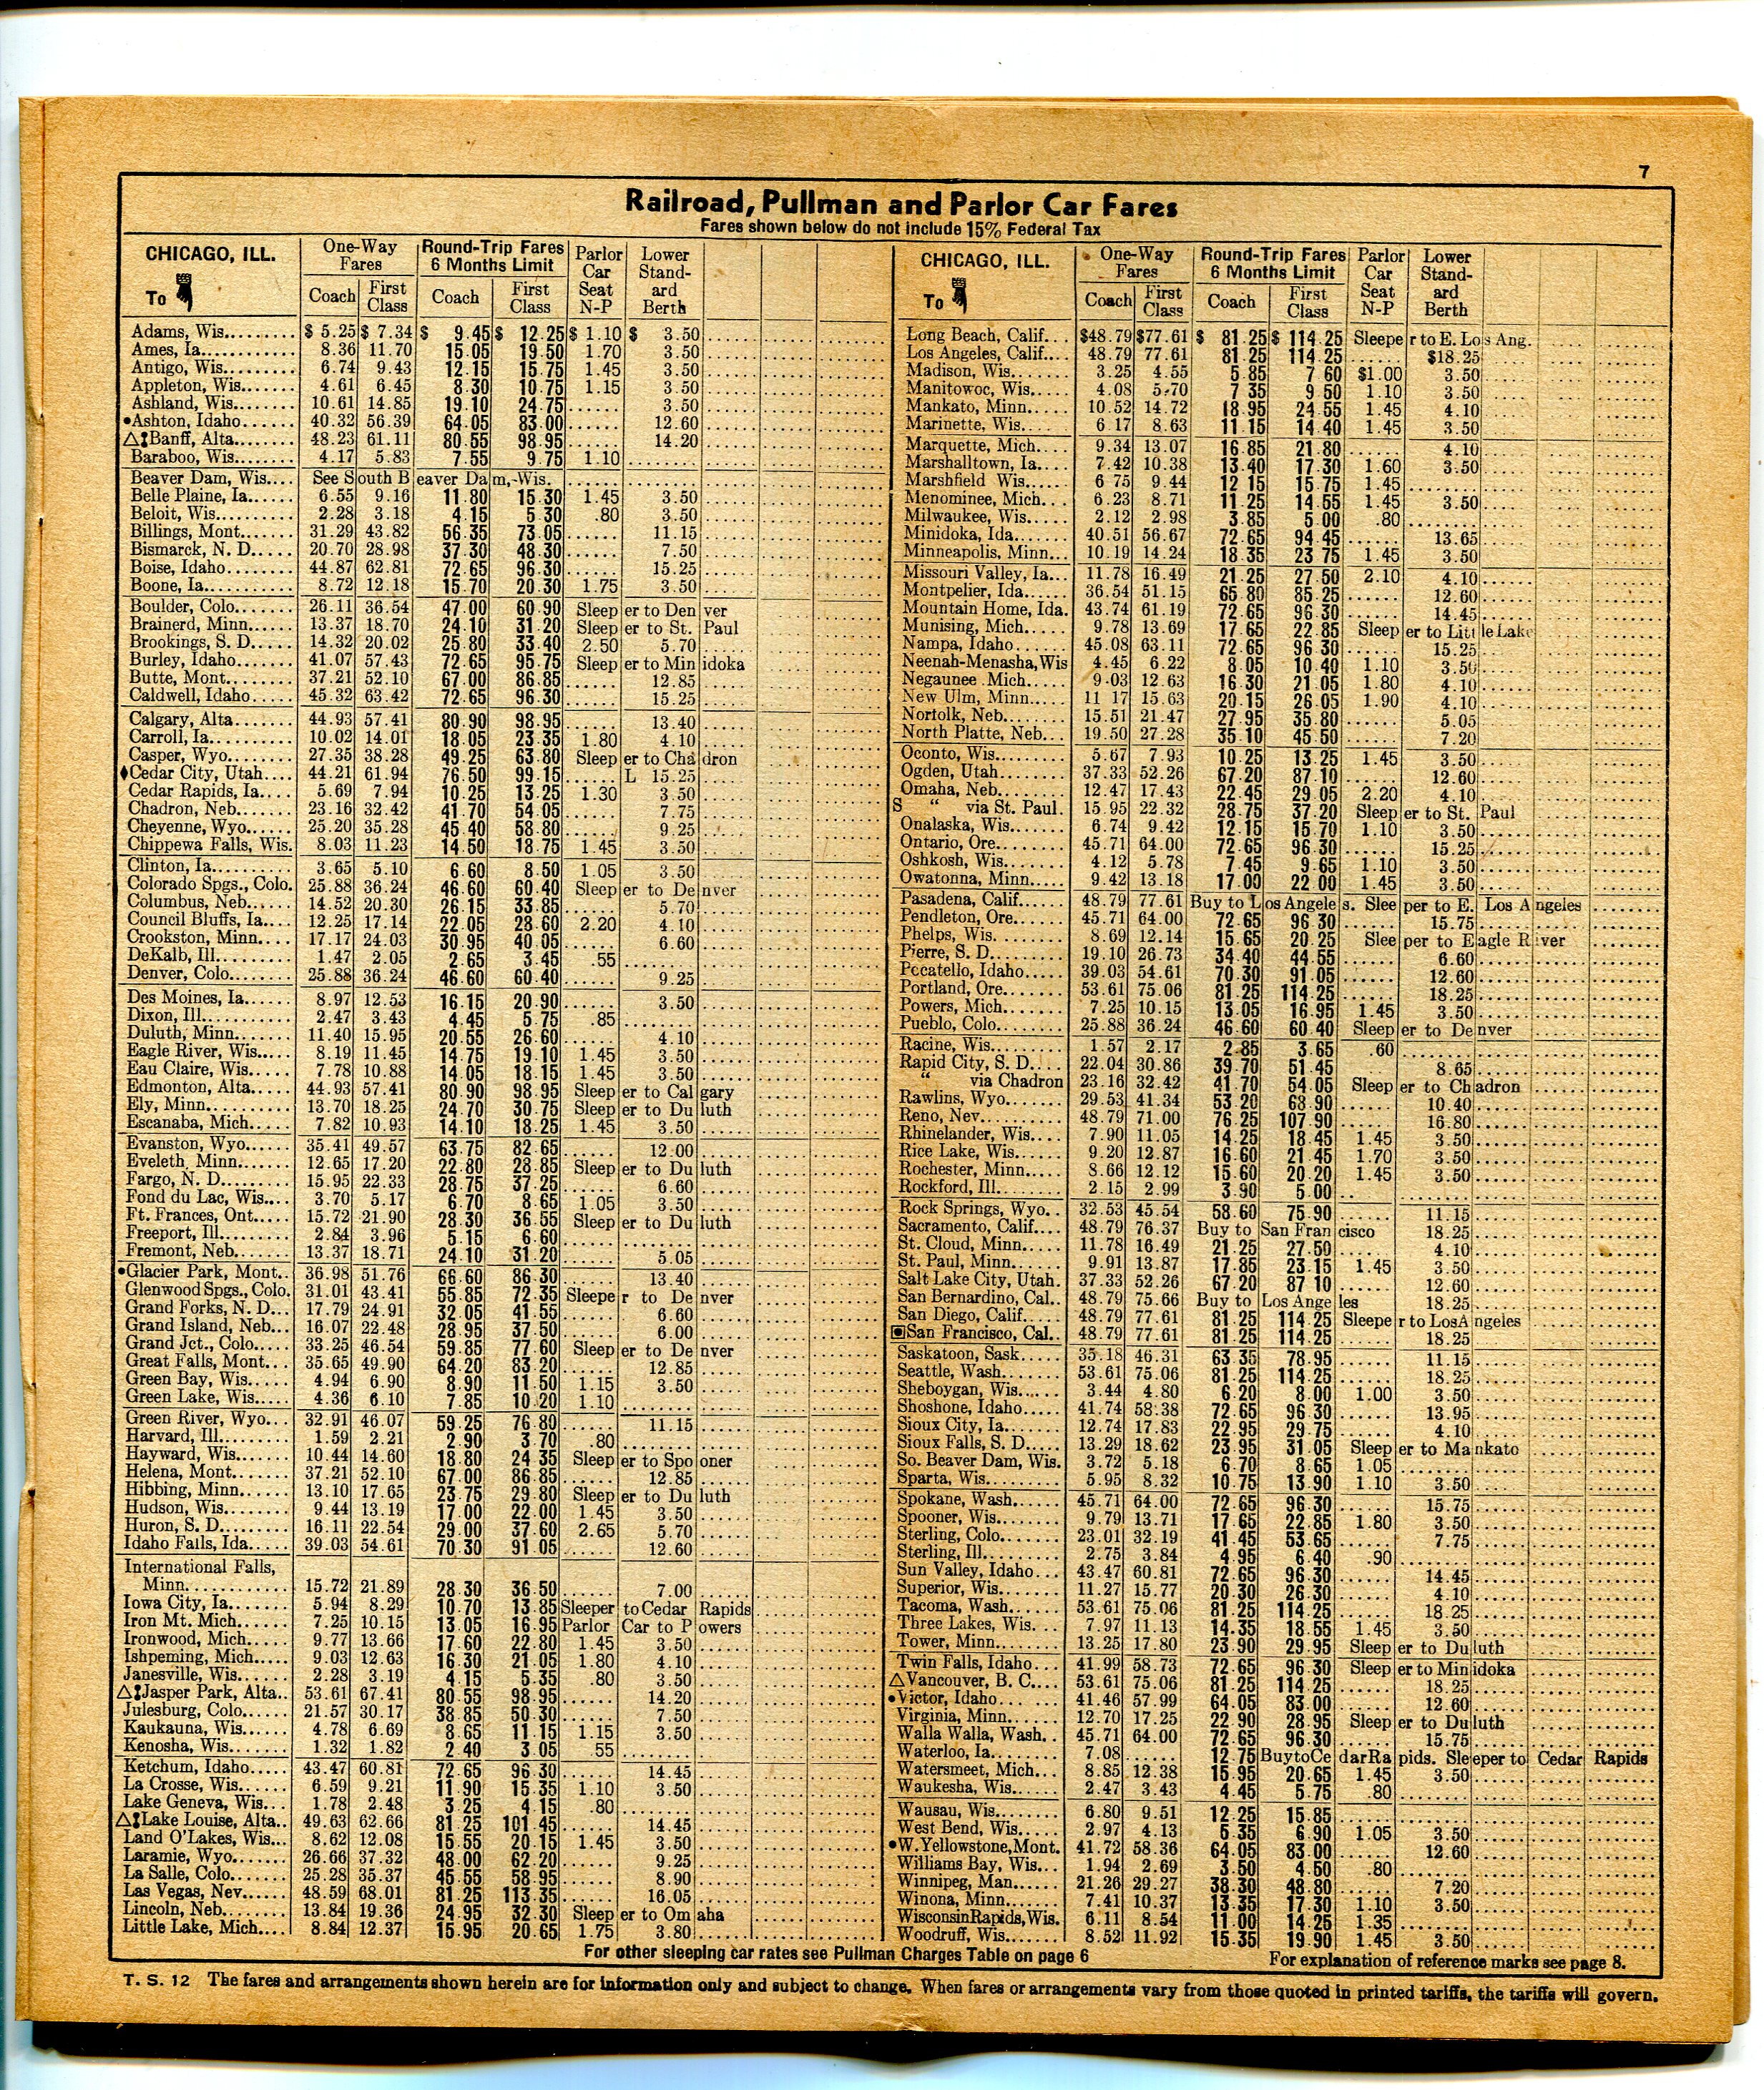 7
Railroad, Pullman and Parlor Car Fares
Fares shown below do not include 15% Federal Tax
CHICAGO, ILL. To One-Way Fares Coach First Class Round-Trip Fares 6 Months Limit Coach First Class Parlor Car Seat N-P Lower Stand-ard Berth
Adams, Wis. $ 5.25 $ 7.34 $ 9.45 $ 12.25 $ 1.10 $ 3.50
Ames, Ia. 8.36 11.70 15.05 19.50 1.70 3.50
Antigo, Wis. 6.74 9.43 12.15 15.75 1.45 3.50
Appleton, Wis. 4.61 6.45 8.30 10.75 1.15 3.50
Ashland, Wis. 10.61 14.85 19.10 24.75 ...... 3.50
•Ashton, Idaho 40.32 56.39 64.05 83.00 ...... 12.60
Banff, Alta. 48.23 61.11 80.55 98.95 ...... 14.20
Baraboo, Wis. 4.17 5.83 7.55 9.75 1.10
Beaver Dam, Wis. See South Beaver Dam, Wis.
Belle Plaine, Ia. 6.55 9.16 11.80 15.30 1.45 3.50
Beloit, Wis. 2.28 3.18 4.15 5.30 .80 3.50
Billings, Mont. 31.29 43.82 56.35 73.05 ...... 11.15
Bismarck, N. D. 20.70 28.98 37.30 48.30 ...... 7.50
Boise, Idaho 44.87 62.81 72.65 96.30 ...... 15.25
Boone, Ia. 8.72 12.18 15.70 20.30 1.75 3.50
Boulder, Colo. 26.11 36.54 47.00 60.90 Sleeper to Denver
Brainerd, Minn. 13.37 18.70 24.10 31.20 Sleeper to St. Paul
Brookings, S. D. 14.32 20.02 25.80 33.40 2.50 5.70
Burley, Idaho 41.07 57.43 72.65 95.75 Sleeper to Minidoka
Butte, Mont. 37.21 52.10 67.00 86.85 ...... 12.85
Caldwell, Idaho 45.32 63.42 72.65 96.30 ...... 15.25
Calgary, Alta. 44.93 57.41 80.90 98.95 ...... 13.40
Carroll, Ia. 10.02 14.01 18.05 23.35 1.80 4.10
Casper, Wyo. 27.35 38.28 49.25 63.80 Sleeper to Chadron
♦Cedar City, Utah 44.21 61.94 76.50 99.15 ...... L 15.25
Cedar Rapids, Ia. 5.69 7.94 10.25 13.25 1.30 3.50
Chadron, Neb. 23.16 32.42 41.70 54.05 ...... 7.75
Cheyenne, Wyo. 25.20 35.28 45.40 58.80 ...... 9.25
Chippewa Falls, Wis. 8.03 11.23 14.50 18.75 1.45 3.50
Clinton, Ia. 3.65 5.10 6.60 8.50 1.05 3.50
Colorado Spgs., Colo. 25.88 36.24 46.60 60.40 Sleeper to Denver
Columbus, Neb. 14.52 20.30 26.15 33.85 ...... 5.70
Council Bluffs, Ia. 12.25 17.14 22.05 28.60 2.20 4.10
Crookston, Minn. 17.17 24.03 30.95 40.05 ...... 6.60
DeKalb, Ill. 1.47 2.05 2.65 3.45 .55
Denver, Colo. 25.88 36.24 46.60 60.40 ...... 9.25
Des Moines, Ia. 8.97 12.53 16.15 20.90 ...... 3.50
Dixon, Ill. 2.47 3.43 4.45 5.75 .85
Duluth, Minn. 11.40 15.95 20.55 26.60 ...... 4.10
Eagle River, Wis. 8.19 11.45 14.75 19.10 1.45 3.50
Eau Claire, Wis. 7.78 10.88 14.05 18.15 1.45 3.50
Edmonton, Alta. 44.93 57.41 80.90 98.95 Sleeper to Calgary
Ely, Minn. 13.70 18.25 24.70 30.75 Sleeper to Duluth
Escanaba, Mich. 7.82 10.93 14.10 18.25 1.45 3.50
Evanston, Wyo. 35.41 49.57 63.75 82.65 ...... 12.00
Eveleth, Minn. 12.65 17.20 22.80 28.85 Sleeper to Duluth
Fargo, N. D. 15.95 22.33 28.75 37.25 ...... 6.60
Fond du Lac, Wis. 3.70 5.17 6.70 8.65 1.05 3.50
Ft. Frances, Ont. 15.72 21.90 28.30 36.55 Sleeper to Duluth
Freeport, Ill. 2.84 3.96 5.15 6.60
Fremont, Neb. 13.37 18.71 24.10 31.20 ...... 5.05
•Glacier Park, Mont. 36.98 51.76 66.60 86.30 ...... 13.40
Glenwood Spgs., Colo. 31.01 43.41 55.85 72.35 Sleeper to Denver
Grand Forks, N. D. 17.79 24.91 32.05 41.55 ...... 6.60
Grand Island, Neb. 16.07 22.48 28.95 37.50 ...... 6.00
Grand Jct., Colo. 33.25 46.54 59.85 77.60 Sleeper to Denver
Great Falls, Mont. 35.65 49.90 64.20 83.20 ...... 12.85
Green Bay, Wis. 4.94 6.90 8.90 11.50 1.15 3.50
Green Lake, Wis. 4.36 6.10 7.85 10.20 1.10
Green River, Wyo. 32.91 46.07 59.25 76.80 ...... 11.15
Harvard, Ill. 1.59 2.21 2.90 3.70 .80
Hayward, Wis. 10.44 14.60 18.80 24.35 Sleeper to Spooner
Helena, Mont. 37.21 52.10 67.00 86.85 ...... 12.85
Hibbing, Minn. 13.10 17.65 23.75 29.80 Sleeper to Duluth
Hudson, Wis. 9.44 13.19 17.00 22.00 1.45 3.50
Huron, S. D. 16.11 22.54 29.00 37.60 2.65 5.70
Idaho Falls, Ida. 39.03 54.61 70.30 91.05 ...... 12.60
International Falls,
Minn. 15.72 21.89 28.30 36.50 ...... 7.00
Iowa City, Ia. 5.94 8.29 10.70 13.85 Sleeper to Cedar Rapids
Iron Mt. Mich. 7.25 10.15 13.05 16.95 Parlor Car to Powers
Ironwood, Mich. 9.77 13.66 17.60 22.80 1.45 3.50
Ishpeming, Mich. 9.03 12.63 16.30 21.05 1.80 4.10
Janesville, Wis. 2.28 3.19 4.15 5.35 .80 3.50
Jasper Park, Alta. 53.61 67.41 80.55 98.95 ...... 14.20
Julesburg, Colo. 21.57 30.17 38.85 50.30 ...... 7.50
Kaukauna, Wis. 4.78 6.69 8.65 11.15 1.15 3.50
Kenosha, Wis. 1.32 1.82 2.40 3.05 .55
Ketchum, Idaho 43.47 60.81 72.65 96.30 ...... 14.45
La Crosse, Wis. 6.59 9.21 11.90 15.35 1.10 3.50
Lake Geneva, Wis. 1.78 2.48 3.25 4.15 .80
Lake Louise, Alta. 49.63 62.66 81.25 101.45 ...... 14.45
Land O'Lakes, Wis. 8.62 12.08 15.55 20.15 1.45 3.50
Laramie, Wyo. 26.66 37.32 48.00 62.20 ...... 9.25
La Salle, Colo. 25.28 35.37 45.55 58.95 ...... 8.90
Las Vegas, Nev. 48.59 68.01 81.25 113.35 ...... 16.05
Lincoln, Neb. 13.84 19.36 24.95 32.30 Sleeper to Omaha
Little Lake, Mich. 8.84 12.37 15.95 20.65 1.75 3.80
CHICAGO, ILL. To One-Way Fares Coach First Class Round-Trip Fares 6 Months Limit Coach First Class Parlor Car Seat N-P Lower Stand-ard Berth
Long Beach, Calif. $48.79 $77.61 $ 81.25 $ 114.25 Sleeper to E. Los Ang.
Los Angeles, Calif. 48.79 77.61 81.25 114.25 ...... $18.25
Madison, Wis. 3.25 4.55 5.85 7.60 $1.00 3.50
Manitowoc, Wis. 4.08 5.70 7.35 9.50 1.10 3.50
Mankato, Minn. 10.52 14.72 18.95 24.55 1.45 4.10
Marinette, Wis. 6.17 8.63 11.15 14.40 1.45 3.50
Marquette, Mich. 9.34 13.07 16.85 21.80 ...... 4.10
Marshalltown, Ia. 7.42 10.38 13.40 17.30 1.60 3.50
Marshfield Wis. 6.75 9.44 12.15 15.75 1.45
Menominee, Mich. 6.23 8.71 11.25 14.55 1.45 3.50
Milwaukee, Wis. 2.12 2.98 3.85 5.00 .80
Minidoka, Ida. 40.51 56.67 72.65 94.45 ...... 13.65
Minneapolis, Minn. 10.19 14.24 18.35 23.75 1.45 3.50
Missouri Valley, Ia. 11.78 16.49 21.25 27.50 2.10 4.10
Montpelier, Ida. 36.54 51.15 65.80 85.25 ...... 12.60
Mountain Home, Ida. 43.74 61.19 72.65 96.30 ...... 14.45
Munising, Mich. 9.78 13.69 17.65 22.85 Sleeper to Little Lake
Nampa, Idaho 45.08 63.11 72.65 96.30 ...... 15.25
Neenah-Menasha, Wis 4.45 6.22 8.05 10.40 1.10 3.50
Negaunee Mich. 9.03 12.63 16.30 21.05 1.80 4.10
New Ulm, Minn. 11.17 15.63 20.15 26.05 1.90 4.10
Norfolk, Neb. 15.51 21.47 27.95 35.80 ...... 5.05
North Platte, Neb. 19.50 27.28 35.10 45.50 ...... 7.20
Oconto, Wis. 5.67 7.93 10.25 13.25 1.45 3.50
Ogden, Utah 37.33 52.26 67.20 87.10 ...... 12.60
Omaha, Neb. 12.47 17.43 22.45 29.05 2.20 4.10
S " via St. Paul. 15.95 22.32 28.75 37.20 Sleeper to St. Paul
Onalaska, Wis. 6.74 9.42 12.15 15.70 1.10 3.50
Ontario, Ore. 45.71 64.00 72.65 96.30 ...... 15.25
Oshkosh, Wis. 4.12 5.78 7.45 9.65 1.10 3.50
Owatonna, Minn. 9.42 13.18 17.00 22.00 1.45 3.50
Pasadena, Calif. 48.79 77.61 Buy to Los Angeles. Sleeper to E. Los Angeles
Pendleton, Ore. 45.71 64.00 72.65 96.30 ...... 15.75
Phelps, Wis. 8.69 12.14 15.65 20.25 Sleeper to Eagle River
Pierre, S. D. 19.10 26.73 34.40 44.55 ...... 6.60
Pocatello, Idaho 39.03 54.61 70.30 91.05 ...... 12.60
Portland, Ore. 53.61 75.06 81.25 114.25 ...... 18.25
Powers, Mich. 7.25 10.15 13.05 16.95 1.45 3.50
Pueblo, Colo. 25.88 36.24 46.60 60.40 Sleeper to Denver
Racine, Wis. 1.57 2.17 2.85 3.65 .60
Rapid City, S. D. 22.04 30.86 39.70 51.45 8.65
" via Chadron 23.16 32.42 41.70 54.05 Sleeper to Chadron
Rawlins, Wyo. 29.53 41.34 53.20 68.90 ...... 10.40
Reno, Nev. 48.79 71.00 76.25 107.90 ...... 16.80
Rhinelander, Wis. 7.90 11.05 14.25 18.45 1.45 3.50
Rice Lake, Wis. 9.20 12.87 16.60 21.45 1.70 3.50
Rochester, Minn. 8.66 12.12 15.60 20.20 1.45 3.50
Rockford, Ill. 2.15 2.99 3.90 5.00
Rock Springs, Wyo. 32.53 45.54 58.60 75.90 ...... 11.15
Sacramento, Calif. 48.79 76.37 Buy to San Francisco 18.25
St. Cloud, Minn. 11.78 16.49 21.25 27.50 ...... 4.10
St. Paul, Minn. 9.91 13.87 17.85 23.15 1.45 3.50
Salt Lake City, Utah. 37.33 52.26 67.20 87.10 ...... 12.60
San Bernardino, Cal. 48.79 75.66 Buy to Los Angeles 18.25
San Diego, Calif. 48.79 77.61 81.25 114.25 Sleeper to Los Angeles
San Francisco, Cal. 48.79 77.61 81.25 114.25 ...... 18.25
Saskatoon, Sask. 35.18 46.31 63.35 78.95 ...... 11.15
Seattle, Wash. 53.61 75.06 81.25 114.25 ...... 18.25
Sheboygan, Wis. 3.44 4.80 6.20 8.00 1.00 3.50
Shoshone, Idaho 41.74 58.38 72.65 96.30 ...... 13.95
Sioux City, Ia. 12.74 17.83 22.95 29.75 ...... 4.10
Sioux Falls, S. D. 13.29 18.62 23.95 31.05 Sleeper to Mankato
So. Beaver Dam, Wis. 3.72 5.18 6.70 8.65 1.05
Sparta, Wis. 5.95 8.32 10.75 13.90 1.10 3.50
Spokane, Wash. 45.71 64.00 72.65 96.30 ...... 15.75
Spooner, Wis. 9.79 13.71 17.65 22.85 1.80 3.50
Sterling, Colo. 23.01 32.19 41.45 53.65 ...... 7.75
Sterling, Ill. 2.75 3.84 4.95 6.40 .90
Sun Valley, Idaho 43.47 60.81 72.65 96.30 ...... 14.45
Superior, Wis. 11.27 15.77 20.30 26.30 ...... 4.10
Tacoma, Wash. 53.61 75.06 81.25 114.25 ...... 18.25
Three Lakes, Wis. 7.97 11.13 14.35 18.55 1.45 3.50
Tower, Minn. 13.25 17.80 23.90 29.95 Sleeper to Duluth
Twin Falls, Idaho 41.99 58.73 72.65 96.30 Sleeper to Minidoka
△Vancouver, B. C. 53.61 75.06 81.25 114.25 ...... 18.25
•Victor, Idaho 41.46 57.99 64.05 83.00 ...... 12.60
Virginia, Minn. 12.70 17.25 22.90 28.95 Sleeper to Duluth
Walla Walla, Wash. 45.71 64.00 72.65 96.30 ...... 15.75
Waterloo, Ia. 7.08 ...... 12.75 Buy to Cedar Rapids. Sleeper to Cedar Rapids
Watersmeet, Mich. 8.85 12.38 15.95 20.65 1.45 3.50
Waukesha, Wis. 2.47 3.43 4.45 5.75 .80
Wausau, Wis. 6.80 9.51 12.25 15.85
West Bend, Wis. 2.97 4.13 5.35 6.90 1.05 3.50
•W. Yellowstone, Mont. 41.72 58.36 64.05 83.00 ...... 12.60
Williams Bay, Wis. 1.94 2.69 3.50 4.50 .80
Winnipeg, Man. 21.26 29.27 38.30 48.80 ...... 7.20
Winona, Minn. 7.41 10.37 13.35 17.30 1.10 3.50
Wisconsin Rapids, Wis. 6.11 8.54 11.00 14.25 1.35
Woodruff, Wis. 8.52 11.92 15.35 19.90 1.45 3.50
For other sleeping car rates see Pullman Charges Table on page 6
For explanation of reference marks see page 8.
T. S. 12 The fares and arrangements shown herein are for information only and subject to change. When fares or arrangements vary from those quoted in printed tariffs, the tariffs will govern.